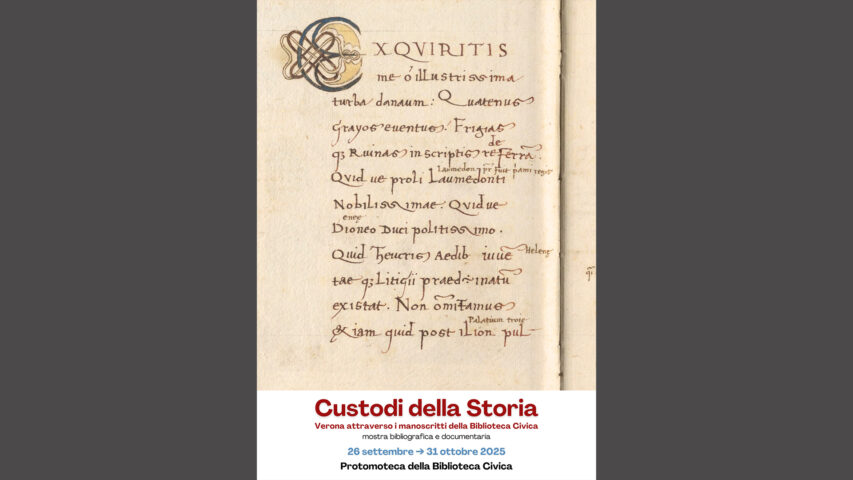 EXQVIRITIS
me o illustrissima
turba danaum: Quatenus
Grayos eventus. Frigias
de
qz Ruinas inscriptis re Ferrā.
Laumedon pr fuit regis
Quid ve proli Laumedonti
Nobilissimae: Quidve
eneę
Dioneo Duci politissimo.
Quid Theucris Aedib iuuē
Helenę
tae qz Litigii praed inatū
existat. Non omittamus
Palatium troię
&iam quid post ilion pul-
Custodi della Storia
Verona attraverso i manoscritti della Biblioteca Civica
mostra bibliografica e documentaria
26 settembre → 31 ottobre 2025
Protomoteca della Biblioteca Civica